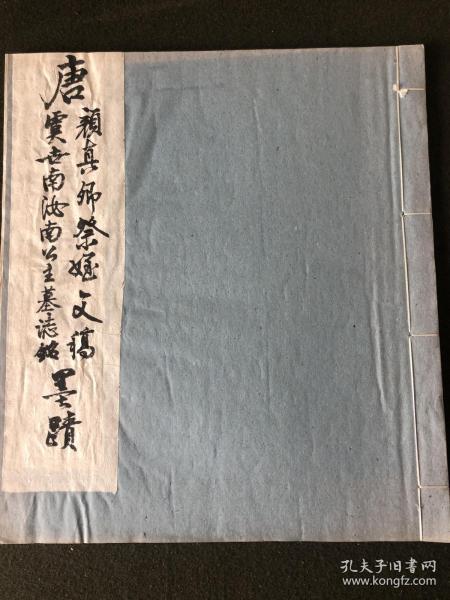 唐
顏真卿祭姪文稿
虞世南汝南公主墓誌銘
墨蹟
孔夫子旧书网
www.kongfz.com